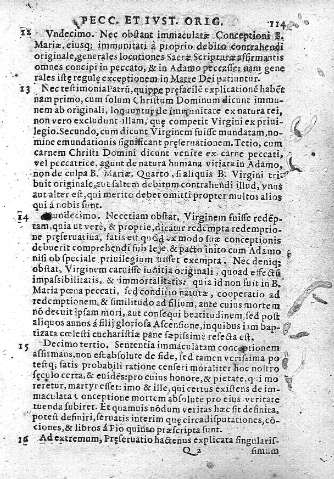 PECC. ET IVST. ORIG. 114
12 Vndecimo. Nec obstant immaculatæ Conceptioni B.
Mariæ, eiusq; immunitati à proprio debito contrahendi
originale, generales locutiones Sacræ Scripturæ affirmantis
omnes concipi in peccato, & in Adamo peccasse: nam gene
rales istę regulę exceptionem in Matre Dei patiuntur.
13 Nec testimonia Patrū, quippe pręfacilē explicationē habēt
nam primo, cum solum Christum Dominum dicunt immu-
nem ab originali, loquuntur de immunitate ex natura rei,
non vero excludunt illam, quę competit Virgini ex priui-
legio. Secundo, cum dicunt Virginem fuisse mundatam, no-
mine emundationis significant preseruationem. Tertio, cum
carnem Christi Domini dicunt venire ex carne peccati,
vel peccatrice, agunt de natura humana vitiata in Adamo,
non de culpa B. Mariæ. Quarto, si aliquis B. Virgini tri
buit originale, aut saltem debitum contrahendi illud, vnus
aut alter est, qui merito debet omitti propter multos alios
qui à nobis sunt.
14 Duodecimo. Nec etiam obstat, Virginem fuisse redēp-
tam, quia vt verè, & propriè, dicatur redempta redemptio-
ne pręseruatiua, satis est quod ex modo suæ conceptionis
debuerit comprehendi sub lege, & pacto inito cum Adamo
nisi ob speciale priuilegium fuisset exempta. Nec deniq;
obstat, Virginem caruisse iustitia originali, quoad effectū
impassibilitatis, & immortalitatis: quia id non fuit in B.
Maria pœna peccati, sed conditio naturæ, cooperatio ad
redemptionem, & similitudo ad filium, ante cuius mortem
nō decuit ipsam mori, aut consequi beatitudinem, sed post
aliquos annos à filij gloriosa Ascensione, in quibus iam bap-
tizata cœlesti eucharistiæ pane sæpissime refecta est.
15 Decimo tertio. Sententia immaculatam conceptionem
affirmans, non est absolute de fide, sed tamen verissima po
testq; satis probabili ratione censeri moraliter hoc nostro
sęculo certa, & euidens: pro cuius honore, & pietate, q i mo
reretur, martyr esset: imo & ille, qui certus existens de im-
maculata conceptione mortem absolute pro eius veritate
tuenda subiret. Et quamuis nōdum veritas hæc sit definita,
potest definiri, seruatis interim quę circa disputationes, cō-
ciones, & libros à Pio quinto præscripta sunt.
16 Ad extremum, Pręseruatio hactenus explicata singularis-
Q 2 simum